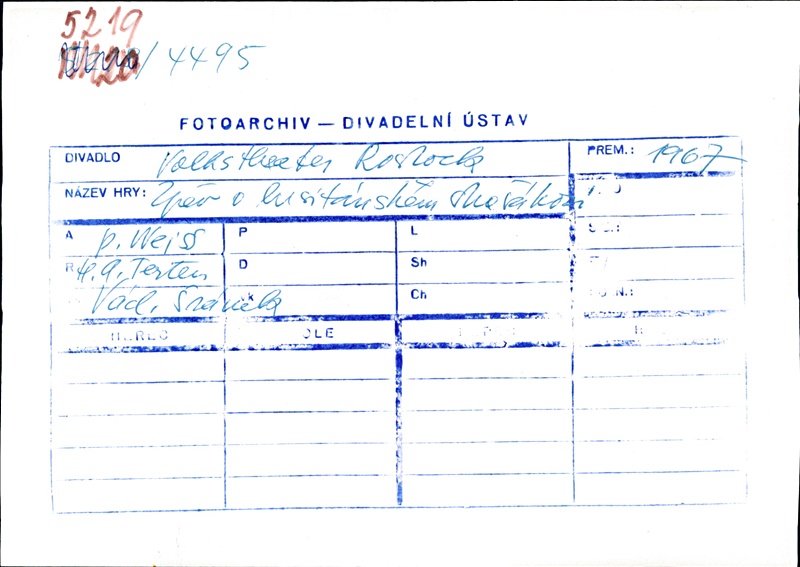 5219
/4495
FOTOARCHIV — DIVADELNÍ ÚSTAV
DIVADLO Volkstheater Rostock PREM.: 1967
NÁZEV HRY: Zpěv o lusitánském strašákovi
A P. Weiss P L
R H. A. Perten D Sh
Václ. Ch
HEREC